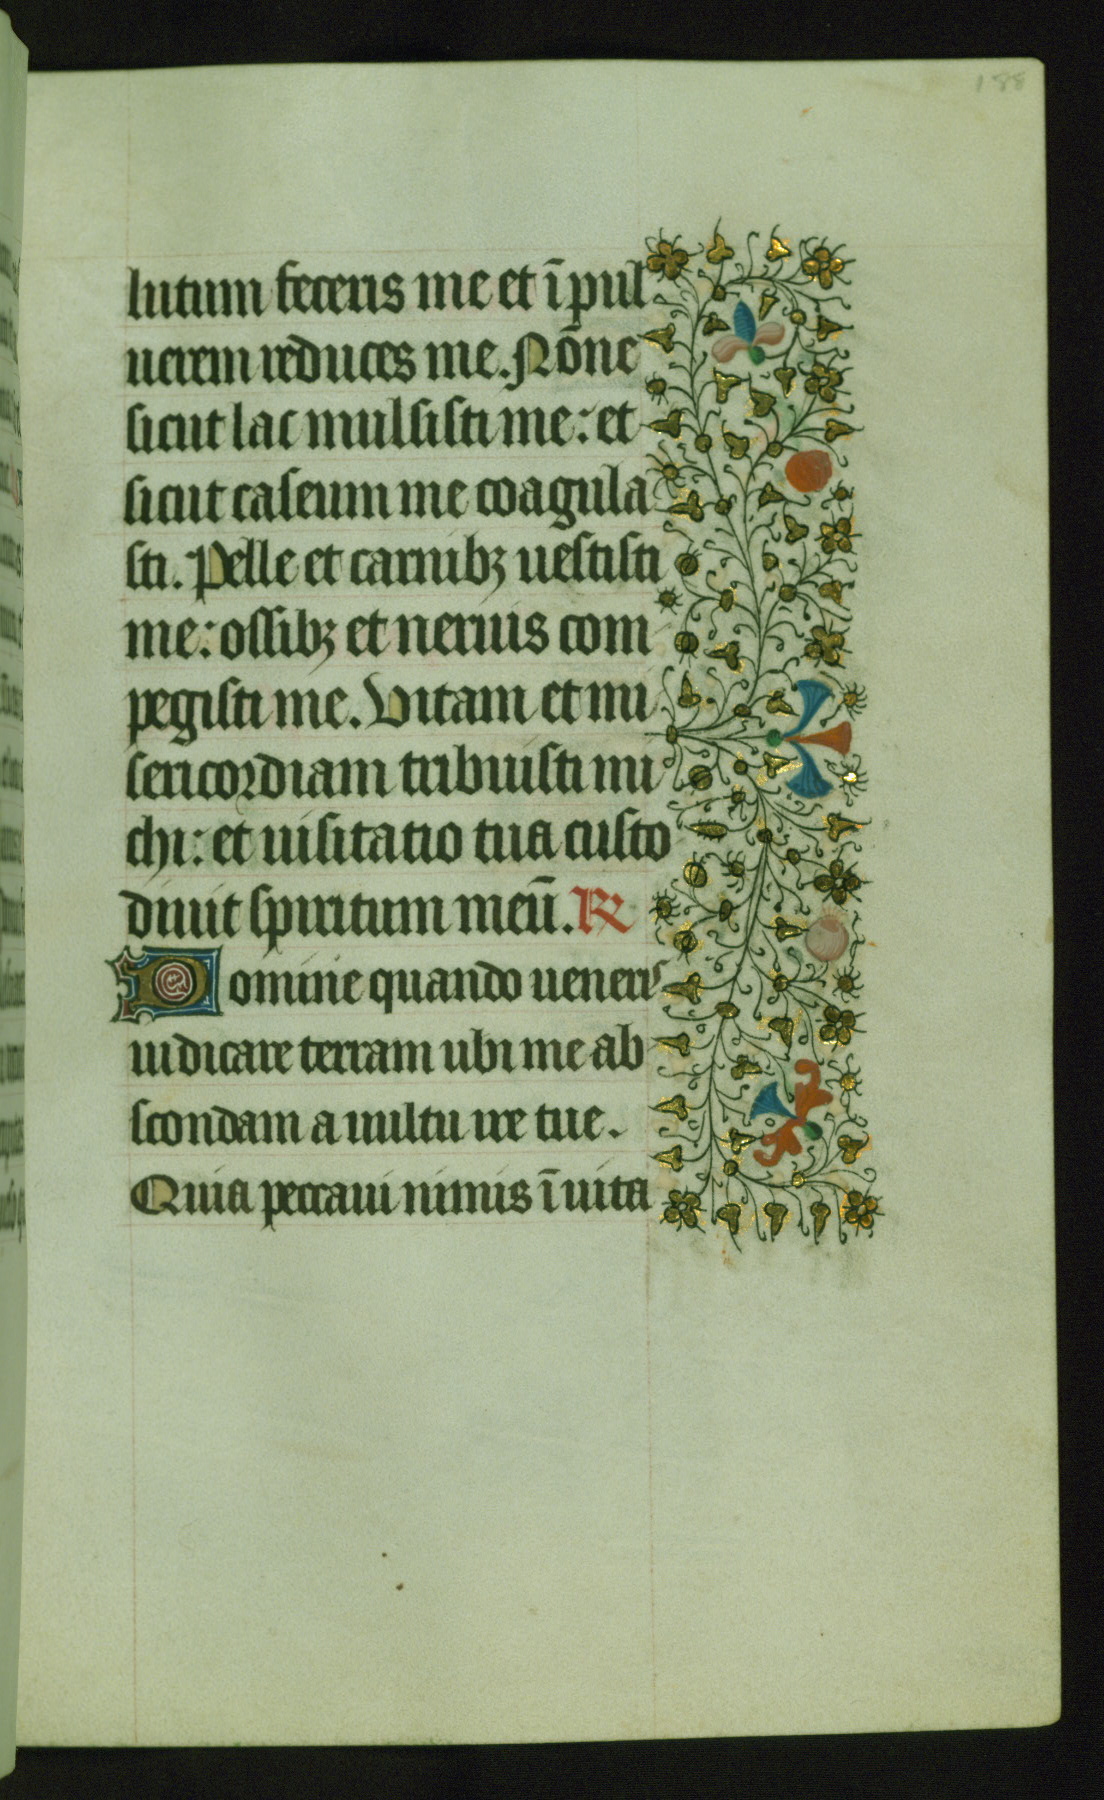 188
lutum feceris me et ī pul
uerem reduces me. Nōne
sicut lac mulsisti me: et
sicut caseum me coagula
sti. Pelle et carnibꝫ uestisti
me: ossibꝫ et neruis com
pegisti me. Vitam et mi
sericordiam tribuisti mi
chi: et uisitatio tua custo
diuit spiritum meū. R
Domine quando ueneris
iudicare terram ubi me ab
scondam a uultu ire tue.
Quia peccaui nimis ī uita